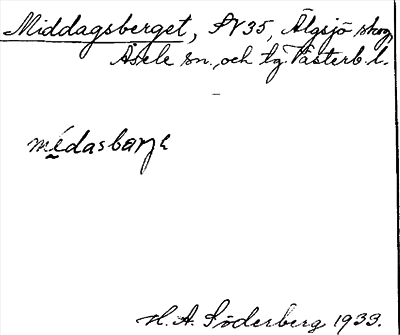 Middagsberget, SV35, Älgsjö skog,
Åsele sn. och tg. Västerb. l.
médasbarja
H. A. Söderberg 1933.